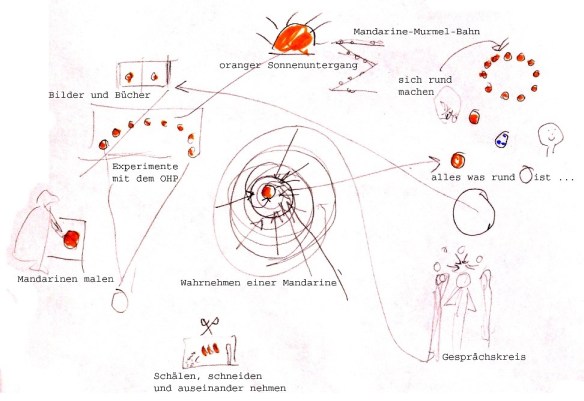 Mandarine-Murmel-Bahn
oranger Sonnenuntergang
sich rund
machen
Bilder und Bücher
Experimente
mit dem OHP
alles was rund ist ...
Mandarinen malen
Wahrnehmen einer Mandarine
Gesprächskreis
Schälen, schneiden
und auseinander nehmen